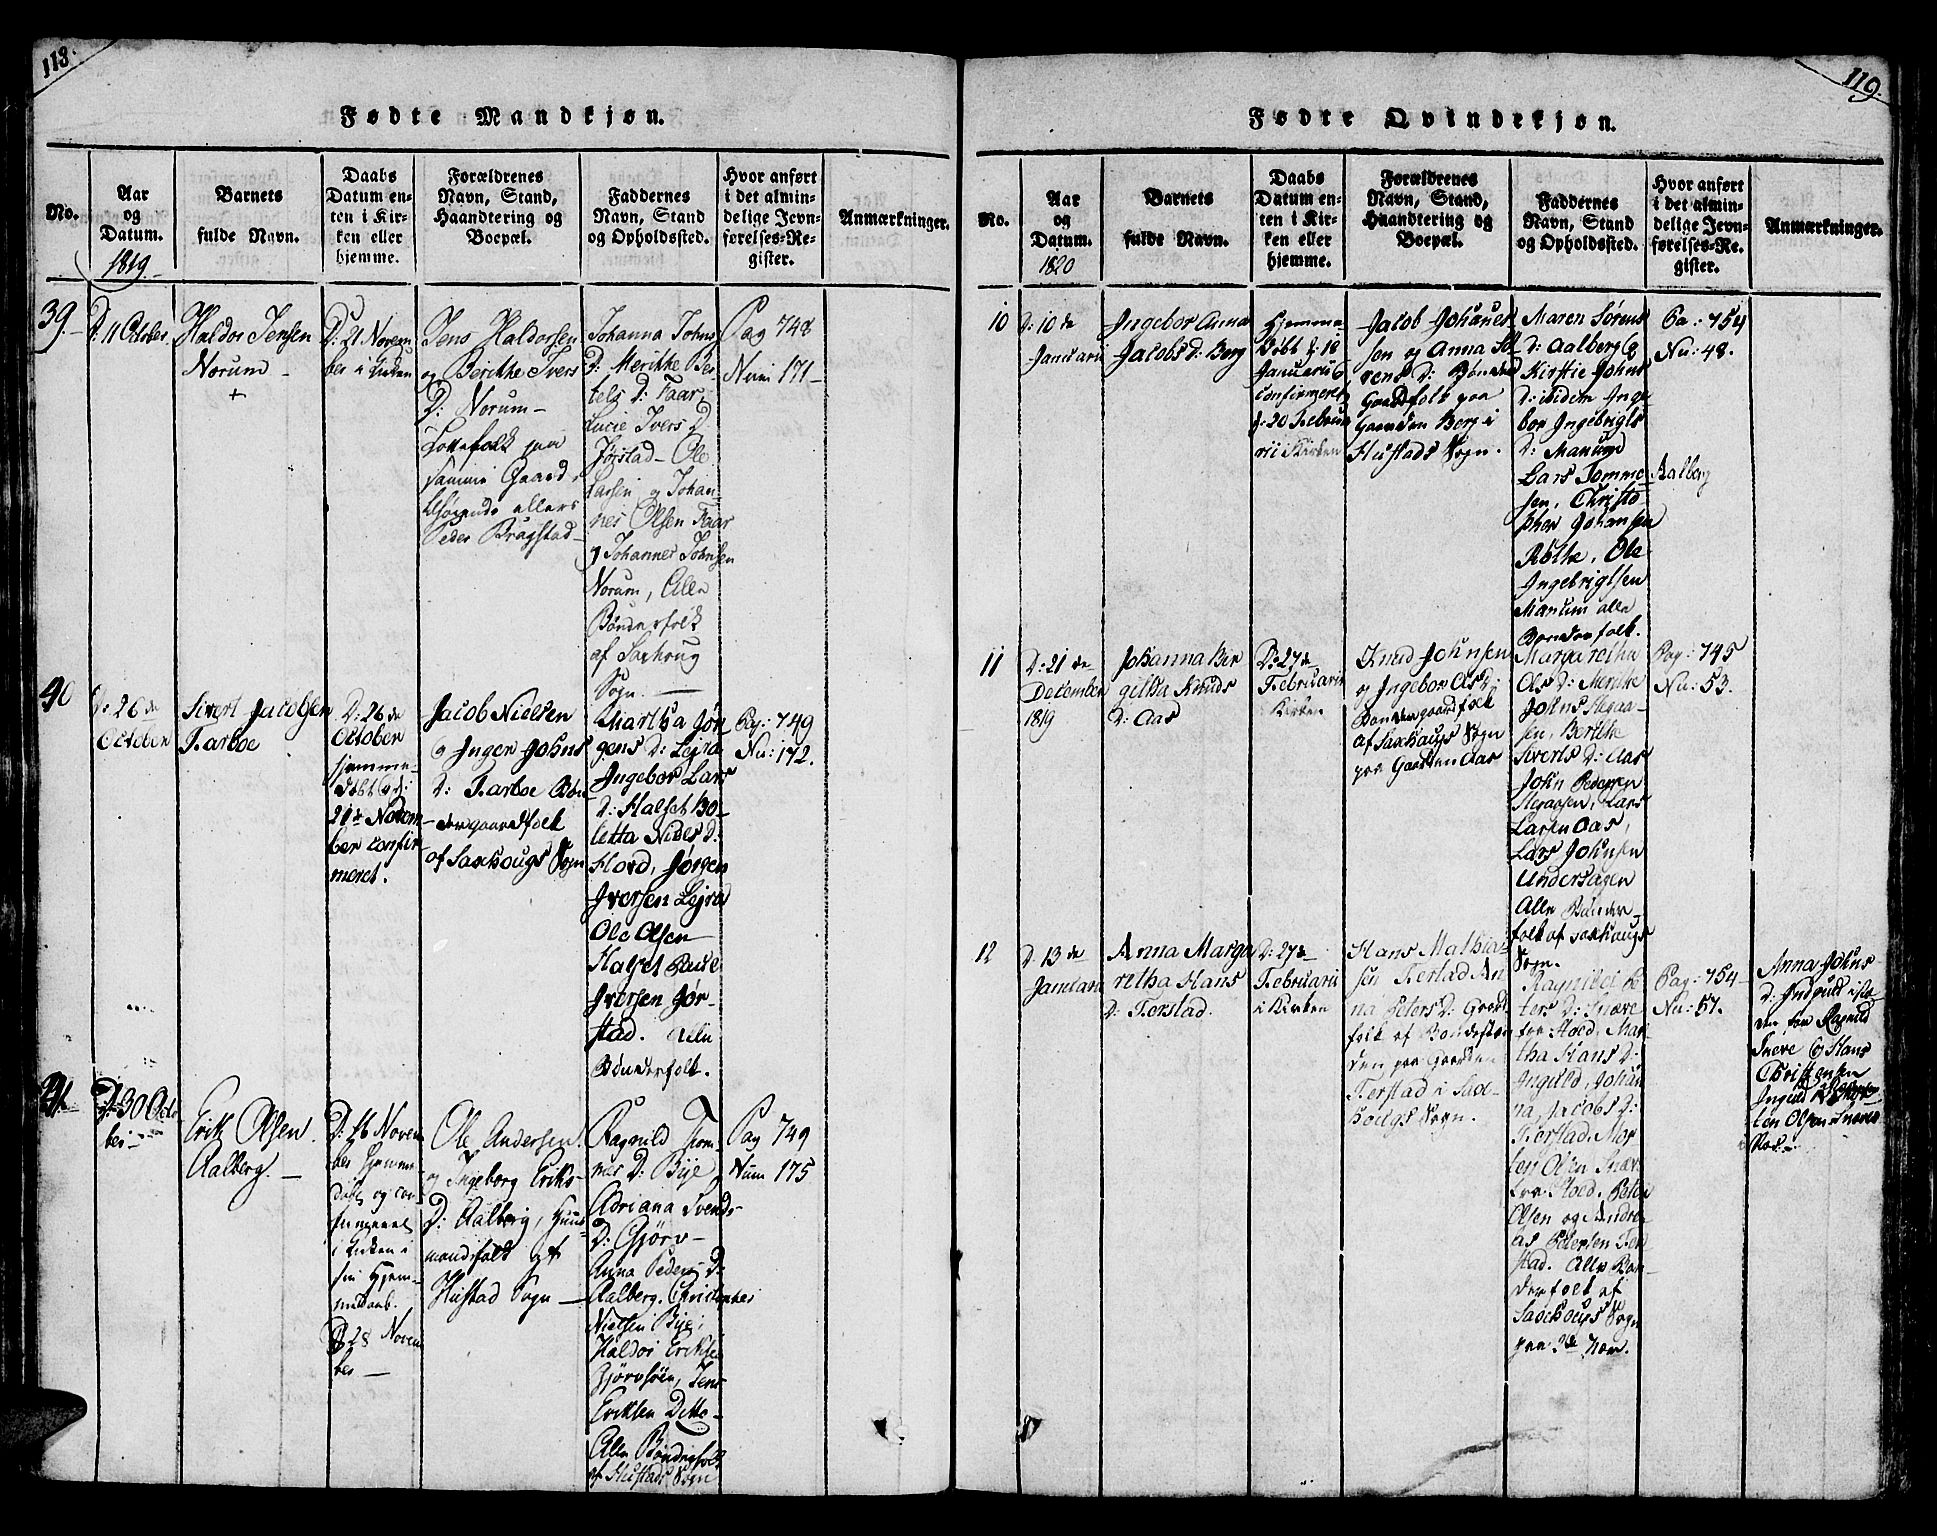 118.
Fødte Mandkjøn.
No.
Aar
og
Datum.
1819.
Barnets
fulde Navn.
Daabs
Datum en-
ten i Kir-
ken eller
hjemme.
Forældrenes
Navn, Stand,
Haandtering og
Boepæl.
Faddernes
Navn, Stand
og Opholdssted.
Hvor anført
i det almin-
delige Jevn-
førelses-Re-
gister.
Anmærkninger.
39.
D: 11 October
Haldor Jensen
Norum
+
D: 21 Novem
ber i Kirken
Jens Haldorsen
og Berethe Ivers
D: Norum
paa
samme Gaard
Peder Bragstad
Johanna Johns
D: Merikke Ber-
tels D: Faar,
Lucie Ivers D:
Jørstad - Ole
Larsen og Johan-
nes Olsen Faar
Johannes Johnsen
Norum, Alle
Bønderfolk
af Saxhoug
Sogn.
Pag 748
Num 171
40
D: 26 de
October
Sivert Jacobsen
Tarboe
D: 26 de
October
hjemme-
døbt og d:
21de Novem
ber confir-
meret.
Jacob Nielsen
og Inger Johns
D: Tarboe Bøn
dergaardfolk
af Saxhougs Sogn
Martha Jør-
gens D: Lejra
Ingebor Lars
D: Halset Bo-
letta Niels D:
Hovd, Jørgen
Iversen Lejra
Ole Olsen
Halset Paul
Iversen Jør-
stad. Alle
Bønderfolk.
Pag: 749
Nu: 172.
41
D: 30 Octo
ber
Erik Olsen
Aalberg.
D: 16 Novem
ber hjemme
døbt og con-
i Kirken
D 28 Novem
ber
Ole Andersen
og Ingeborg Eriks-
D: Aalberg, Huus-
mandsfolk af
Hustad Sogn
Ragnild Tom-
mes D: Bye
Adriana Svends-
D: Gjørv
Anna Peders D:
Aalberg. Christopher
Nielsen Bye,
Haldor Eriksen
Jens
Eriksen Ditto
Alle Bønderfolk
af Hustads Sogn
Pag 749
Num 175
119.
Fødte Qvindekjøn.
No.
Aar
og
Datum.
1820
Barnets
fulde Navn.
Daabs
Datum en-
ten i Kir-
ken eller
hjemme.
Forældrenes
Navn, Stand,
Haandtering og
Boepæl.
Faddernes
Navn, Stand
og Opholdssted.
Hvor anført
i det almin-
delige Jevn-
førelses-Re-
gister.
Anmærkninger.
10
D: 10 de
Januarii
Ingebor Anna
Jacobs D: Berg
Hjemme
Døbt d: 18
Januarii
confirmeret
d: 20 Februa
rii i Kirken
Jacob Johannes
sen og Anna Sø-
rens D: Bønder
Gaardfolk paa
Gaarden Berg i
Hustads Sogn.
Maren Sørens
D: Aalberg og
Kirstie Johns
D: ibidem Inge-
bor Ingebrigts
D: Manum
Lars Tomme-
sen, Christo
pher Johansen
Røthe, Ole
Ingebrigtsen
Manum alle
Bønderfolk.
Pa: 754
Nu: 48.
Aalberg
11
D: 21 de
December
1819
Johanna Ber
githa Knuds
D: Aas
D: 27de
Februarii
i Kirken
Knud Johnsen
og Ingebor As D:
Bøndergaardfolk
af Saxhaugs Sogn
paa Gaarden Aas
Margaretha
Ols D: Merethe
Johns
Berthe
Siverts D: Aas
John Pedersen
Lars
Larsen Aas,
Lars Johnsen
Undersagen
Alle Bønder-
folk af Saxhaugs
Sogn.
Pag: 745
Nu: 53.
12
D 13 de
Januarii
Anna Marga
retha Hans
D: Tierstad.
D: 27de
Februarii
i Kirken
Hans Mathia-
sen Tierstad An
na Peters D: Gaard
folk af Bondestan
den paa Gaarden
Tierstad i Sax-
hougs Sogn.
Ragnild Pe
ters D: Snære
fra Stoed, Mar
tha Hans D:
Inguld, Johan
na Jacobs D:
Tierstad, Mor
ten Olsen Snær
fra Stoed, Peter
Olsen og Andre
as Petersen Tier
stad. Alle Bøn-
derfolk af
Saxhougs Sogn
paa 2de nær.
Pag: 754
Nu: 57.
Anna Johns
D: Inguld iste-
den for Ragnild
Snere og Hans
Christensen
Inguld Mor-
ten Olsen Snæres